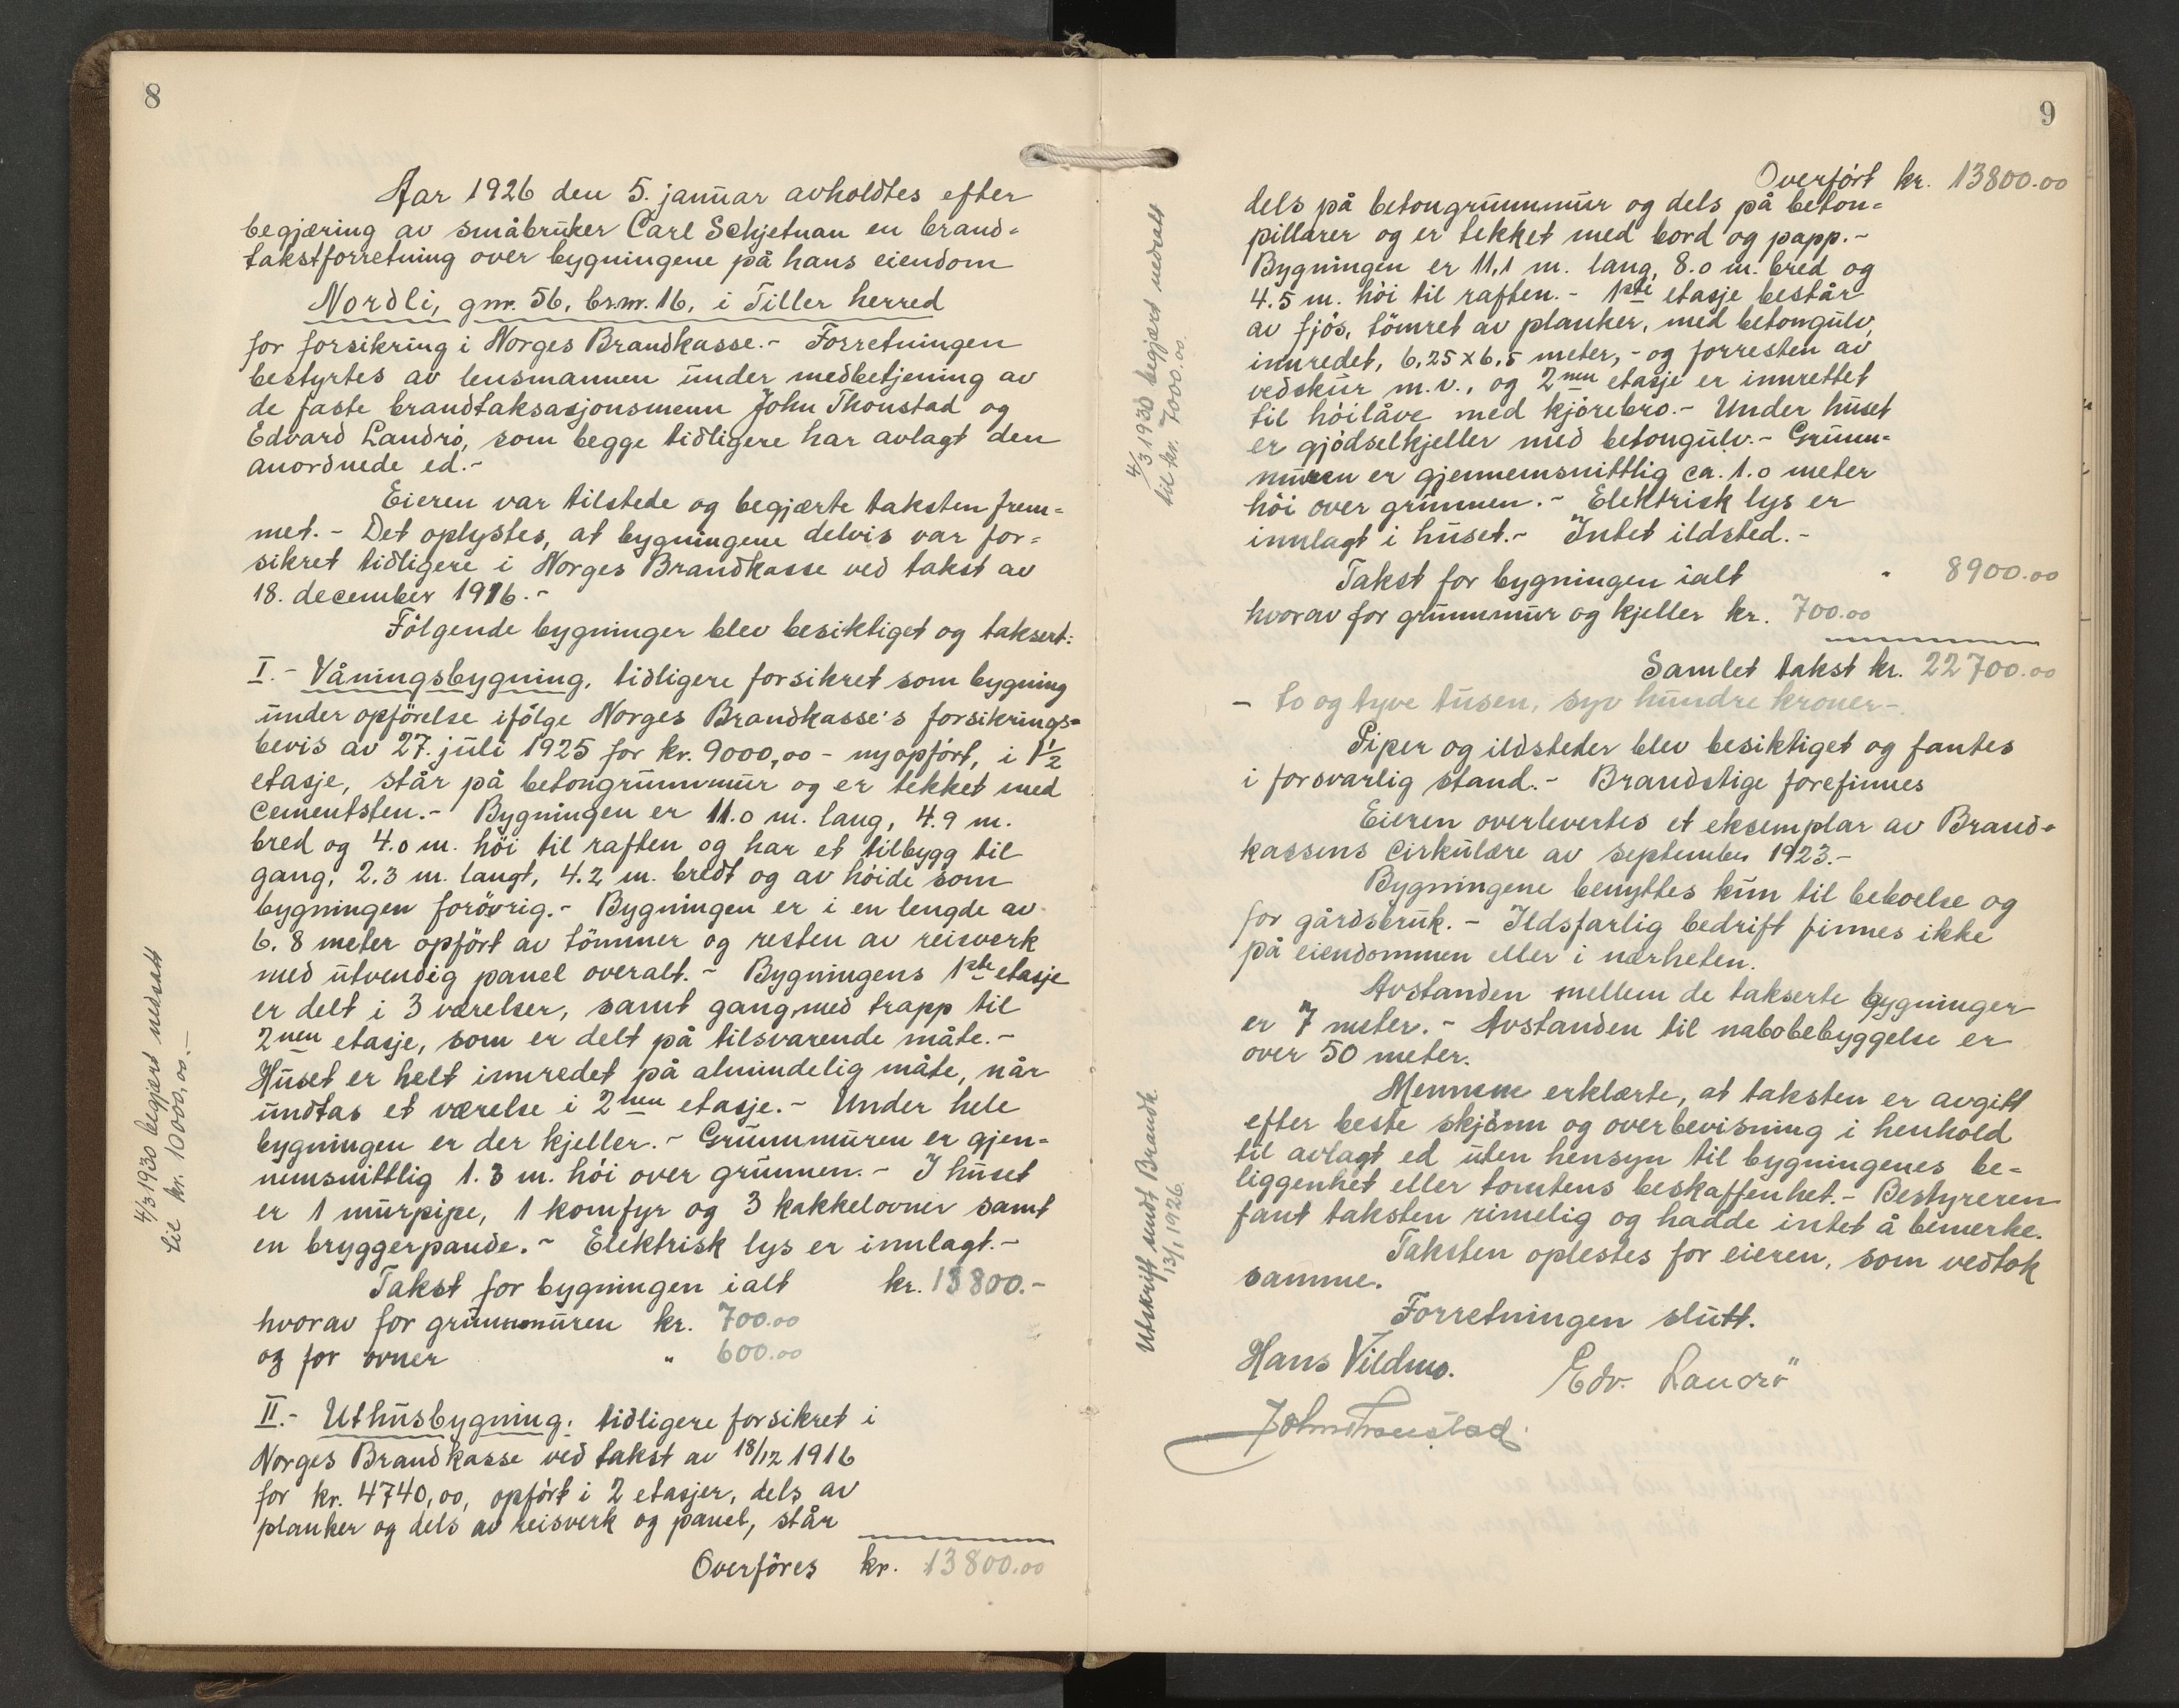 8
Aar 1926 den 5. januar avholdtes efter
begjæring av småbruker Carl Schjetnan en brand-
takstforretning over bygningene på hans eiendom
Nordli, gnr. 56, brnr. 16, i Tiller herred
for forsikring i Norges Brandkasse.- Forretningen
bestyrtes av lensmannen under medbetjening av
de faste brandtaksasjonsmenn John Thonstad og
Edvard Landrö, som begge tidligere har avlagt den
anordnede ed.-
Eieren var tilstede og begjærte taksten frem-
met.- Det oplystes, at bygningene delvis var for-
sikret tidligere i Norges Brandkasse ved takst av
18. december 1916.-
Fölgende bygninger blev besiktiget og taksert:
I.- Våningsbygning, tidligere forsikret som bygning
under opförelse ifölge Norges Brandkasse's forsikrings-
bevis av 27. juli 1925 for kr. 9000,00 - nyopfört, i 1½
etasje, står på betongrunnmur og er tekket med
cementsten.- Bygningen er 11.0 m. lang, 4.9 m.
bred og 4.0 m. höi til raften og har et tilbygg til
gang, 2.3 m. langt, 4.2 m. bredt og av höide som
bygningen forövrig.- Bygningen er i en lengde av
6.8 meter opfört av tömmer og resten av reisverk
med utvendig panel overalt.- Bygningens 1ste etasje
er delt i 3 værelser, samt gang, med trapp til
2nen etasje, som er delt på tilsvarende måte.-
Huset er helt innredet på almindelig måte, når
undtas et værelse i 2nen etasje.- Under hele
bygningen er der kjeller.- Grunnmuren er gjen-
nemsnittlig 1.3 m. höi over grunnen.- I huset
er 1 murpipe, 1 komfyr og 3 kakkelovner samt
en bryggerpande.- Elektrisk lys er innlagt.-
Takst for bygningen ialt kr. 13800.-
hvorav for grunnmuren kr. 700.00
og for ovner " 600.00
II.- Uthusbygning, tidligere forsikret i
Norges Brandkasse ved takst av 18/12 1916
for kr. 4740,00, opfört i 2 etasjer, dels av
planker og dels av reisverk og panel, står
Overföres kr. 13800.00
4/3 1930 begjært nedsatt
til kr. 10000,00.-
9
Overfört kr. 13800.00
dels på betongrunnmur og dels på beton-
pillarer og er tekket med bord og papp.-
Bygningen er 11,1 m. lang, 8.0 m. bred og
4.5 m. höi til raften.- 1ste etasje består
av fjös, tömret av planker, med betongulv,
innredet, 6,25 x 6,5 meter,- og forresten av
vedskur m.v., og 2nen etasje er innrettet
til höilåve med kjörebro.- Under huset
er gjödselkjeller med betongulv.- Grunn-
muren er gjennemsnittlig ca. 1.0 meter
höi over grunnen.- Elektrisk lys er
innlagt i huset.- Intet ildsted.-
Takst for bygningen ialt " 8900.00
hvorav for grunnmur og kjeller kr. 700.00
Samlet takst kr. 22700.00
- to og tyve tusen, syv hundre kroner-.
Piper og ildsteder blev besiktiget og fantes
i forsvarlig stand.- Brandstige forefinnes
Eieren overlevertes et eksemplar av Brand-
kassens cirkulære av september 1923.-
Bygningene benyttes kun til beboelse og
for gårdsbruk.- Ildsfarlig bedrift finnes ikke
på eiendommen eller i nærheten.
Avstanden mellem de takserte bygninger
er 7 meter.- Avstanden til nabobebyggelse er
over 50 meter.
Mennene erklærte, at taksten er avgitt
efter beste skjönn og overbevisning i henhold
til avlagt ed uten hensyn til bygningenes be-
liggenhet eller tomtens beskaffenhet.- Bestyreren
fant taksten rimelig og hadde intet å bemerke.
Taksten oplestes for eieren, som vedtok
samme.
Forretningen slutt.
Hans Vildmo. Edv. Landrö
John Thonstad
4/3 1930 begjært nedsatt
til kr. 7000.00
Utskrift sendt Brandk.
13/1 1926.